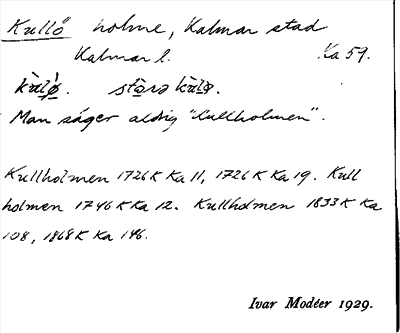 Kullö holme, Kalmar stad
Kalmar l. Ka 59.
kùlǿ. stòra kùlø.
Man säger aldrig "Kullholmen".
Kullholmen 1726 K Ka 11, 1726 K Ka 19. Kull
holmen 1746 K Ka 12. Kullholmen 1833 K Ka
108, 1868 K Ka 146.
Ivar Modéer 1929.